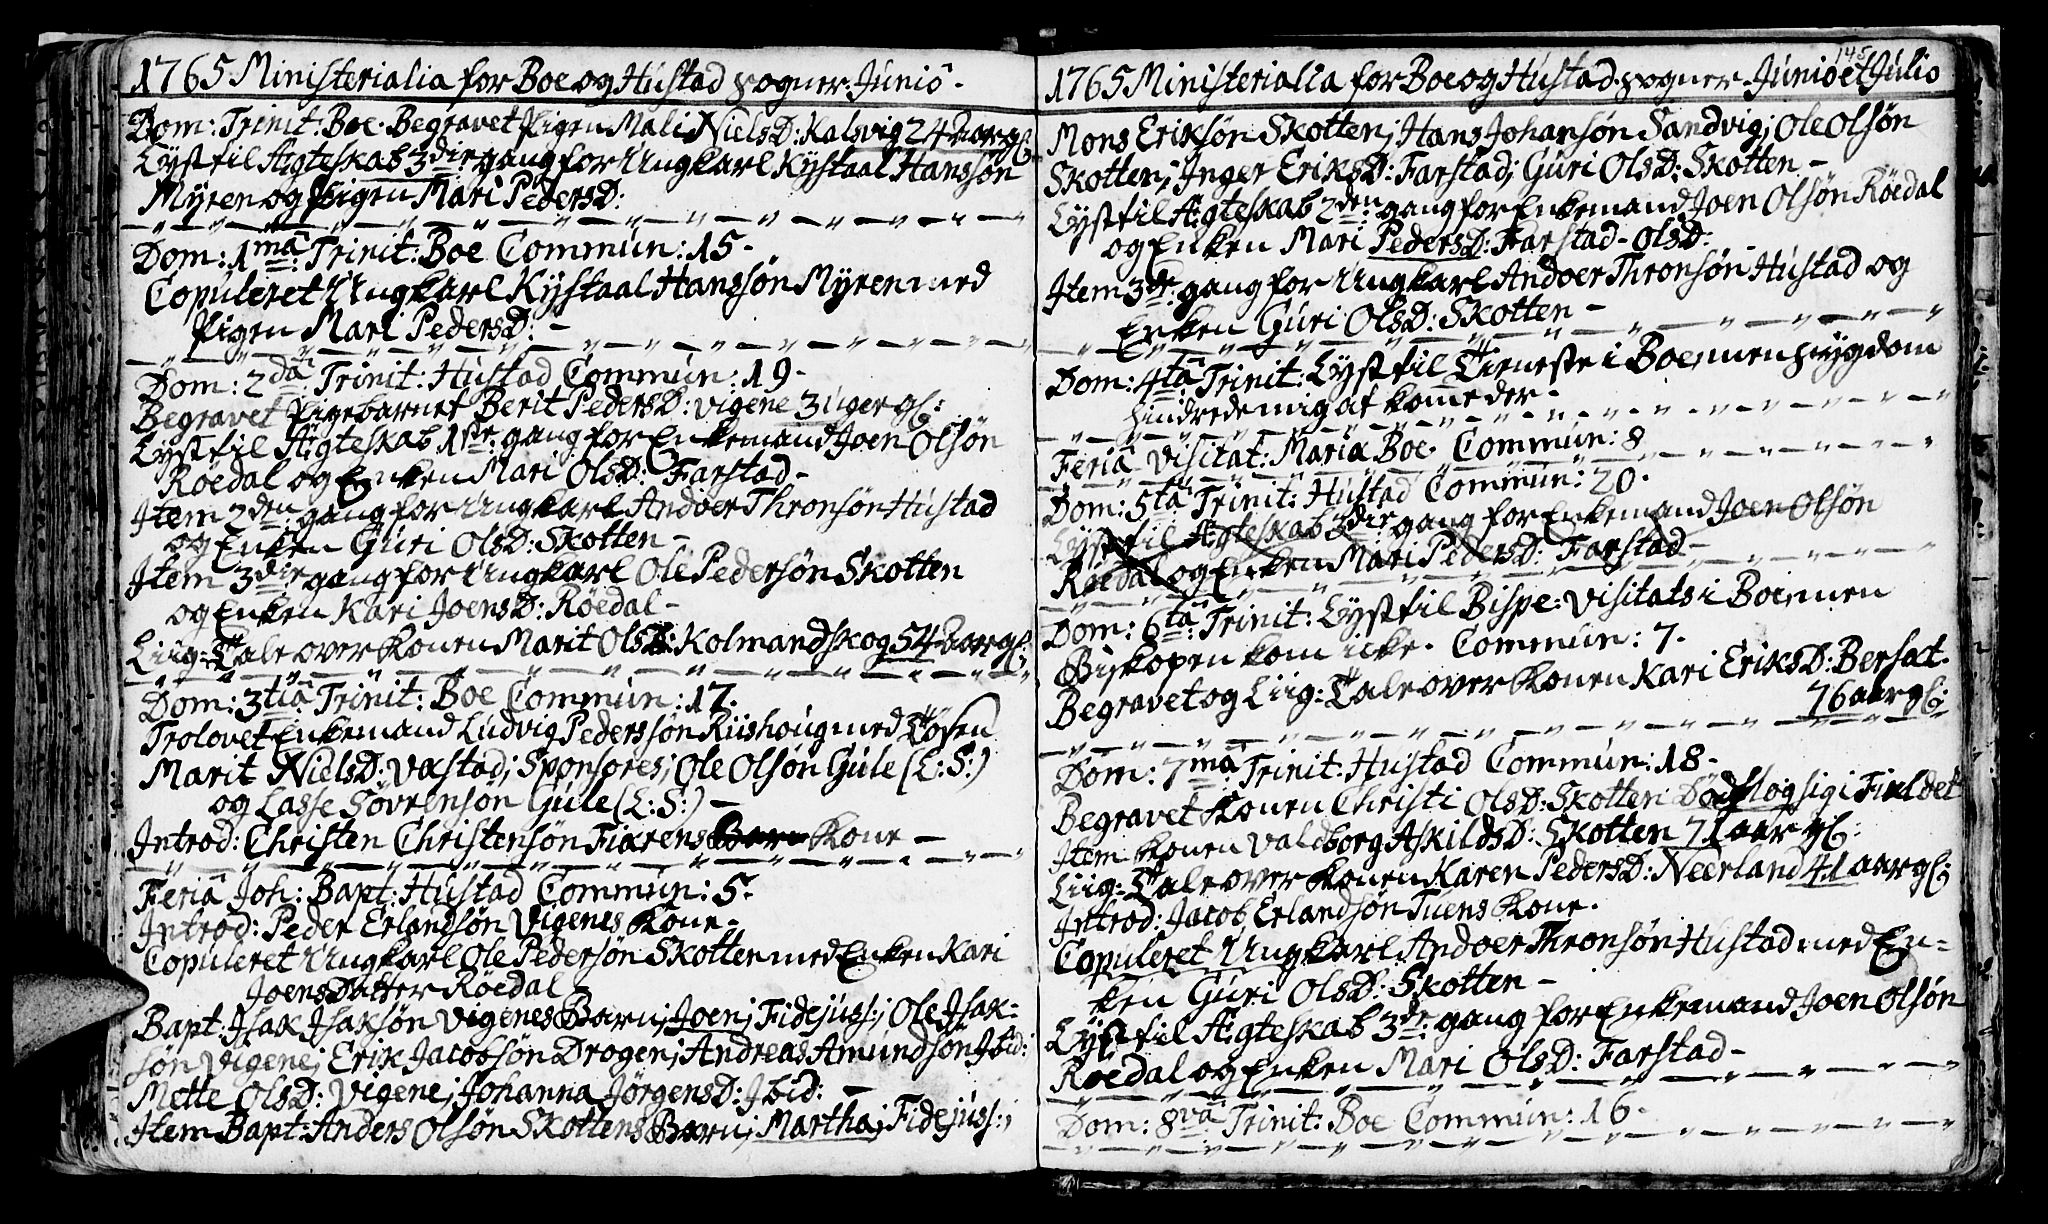 1765 Ministerialia for Boe og Hustad sogner Junio.
Dom: Trinit: Boe. Begravet Pigen Mali NielsD: Kalsvig 24 aar gl:
Lyst til Ægteskab 3die gang for Ungkarl Kystaal Hanssøn
Myren og Pigen Mari PedersD:
Dom: 1mâ Trinit: Boe Commun: 15 -
Copuleret Ungkarl Kystaal Hanssøn Myren med
Pigen Mari PedersD: -
Dom: 2dâ Trinit: Hustad Commun: 19 -
Begravet Pigebarnet Berit PedersD: Vigene 3 uger gl:
Lyst til Ægteskab 1ste gang for Enkemand Joen Olsøn
Röedal og Enken Mari OlsD: Farstad -
Item 2den gang for Ungkarl Andoer Thronsøn Hustad
og Enken Guri OlsD: Skotten -
Item 3die gang for Ungkarl Ole Pedersøn Skotten
og Enken Kari JoensD: Röedal -
Liig-Tale over Konen Marit OlsD: Kolmandskog 54 aar gl:
Dom: 3tiâ Trinit: Boe Commun: 17.
Trolovet Enkemand Ludvig Pederssøn Riishoug med Tøsen
Marit NielsD: Vastad; Sponsores; Ole Olsøn Gule (L: S:)
og Lasse Sövrensøn Gule (L: S:) -
Introd: Christen Christensøn Fiærens Barn Kone -
Feriâ Joh: Bapt: Hustad Commun: 5.
Introd: Peder Erlandsøn Vigenes Kone -
Copuleret Ungkarl Ole Pedersøn Skotten med Enken Kari
Joens Datter Röedal
Bapt: Isak Isaksøn Vigenes Barn; Joen; Fidejuss:; Ole Isak-
søn Vigene; Erik Jacobsøn Drogen; Andreas Amundsøn Ibid:
Mette OlsD: Vigene; Johanna JörgensD: Ibid: -
Item Bapt: Anders Olsøn Skottens Barn; Martha; Fidejuss:;
145
1765 Ministerialia for Boe og Hustad sogner Junio et Julio
Mons Eriksøn Skotten; Hans Johansøn Sandvig; Ole Olsøn
Skotten; Inger EriksD: Farstad; Guri OlsD: Skotten -
Lyst til Ægteskab 2den gang for Enkemand Joen Olsøn Röedal
og Enken Mari PedersD: Farstad - OlsD:
Item 3die gang for Ungkarl Andoer Thronsøn Hustad og
Enken Guri OlsD: Skotten -
Dom: 4tâ Trinit: Lyst til Tieneste i Boe, men sygdom
hindrede mig at komme der -
Feriâ Visitat: Maria Boe. Commun: 8
Dom: 5tâ Trinit: Hustad Commun: 20.
Lyst til Ægteskab 3die gang for Enkemand Joen Olsøn
Röedal og Enken Mari PedersD: Farstad -
Dom: 6tâ Trinit: Lyst til Bispe-Visitats i Boe, men
Biskopen kom icke. Commun: 7.
Begravet og Liig-Tale over Konen Kari EriksD: Bersat.
76 aar gl:
Dom: 7mâ Trinit: Hustad Commun: 18 -
Begravet Konen Christi OlsD: Skotten Dødslog sig i Fieldet
Item Konen Valdborg AskildsD: Skotten 71 aar gl:
Liig-Tale over Konen Karen PedersD: Neerland 41 aar gl:
Introd: Jacob Erlandsøn Tuens Kone.
Copuleret Ungkarl Andoer Thronsøn Hustad med En-
ken Guri OlsD: Skotten -
Lyst til Ægteskab 3die gang for Enkemand Joen Olsøn
Röedal og Enken Mari OlsD: Farstad -
Dom: 8vâ Trinit: Boe Commun: 16.